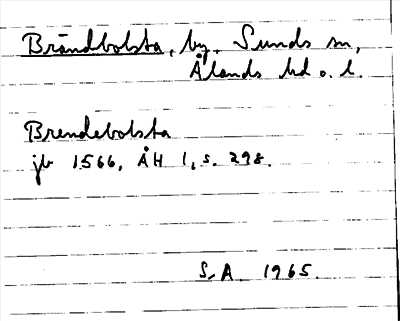 Brändbolsta, by, Sunds sn,
Ålands hd o. l.
Brendebolsta
jb 1566, ÅH 1, s. 298.
S. A 1965.